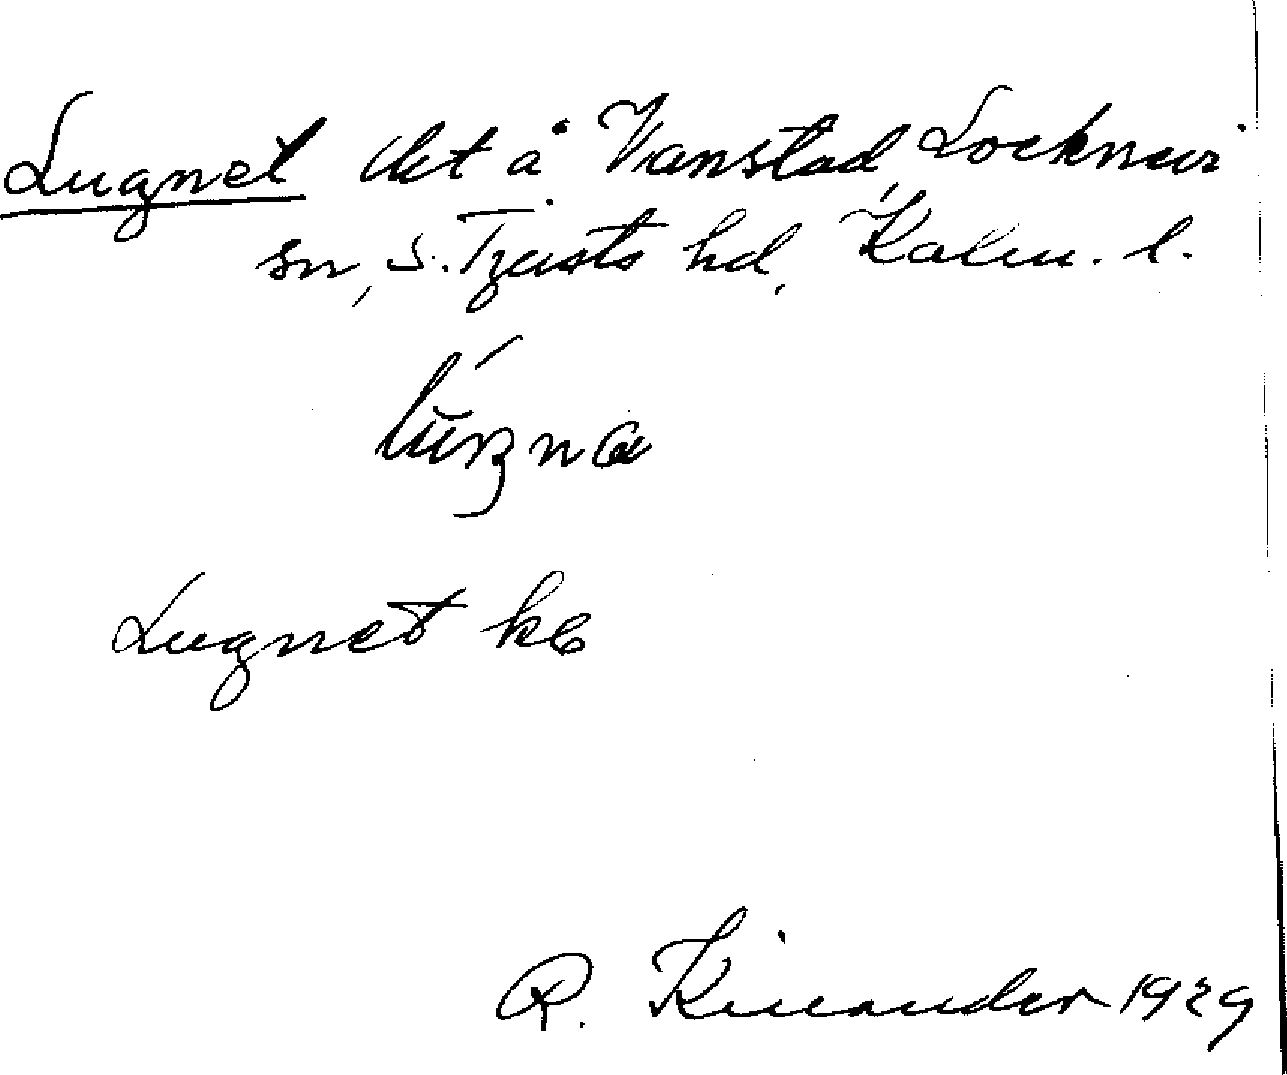 Lugnet lht å Vanstad, Locknevi
sn, S. Tjusts hd, Kalm. l.
Lugnet kb
R. Kinander 1929